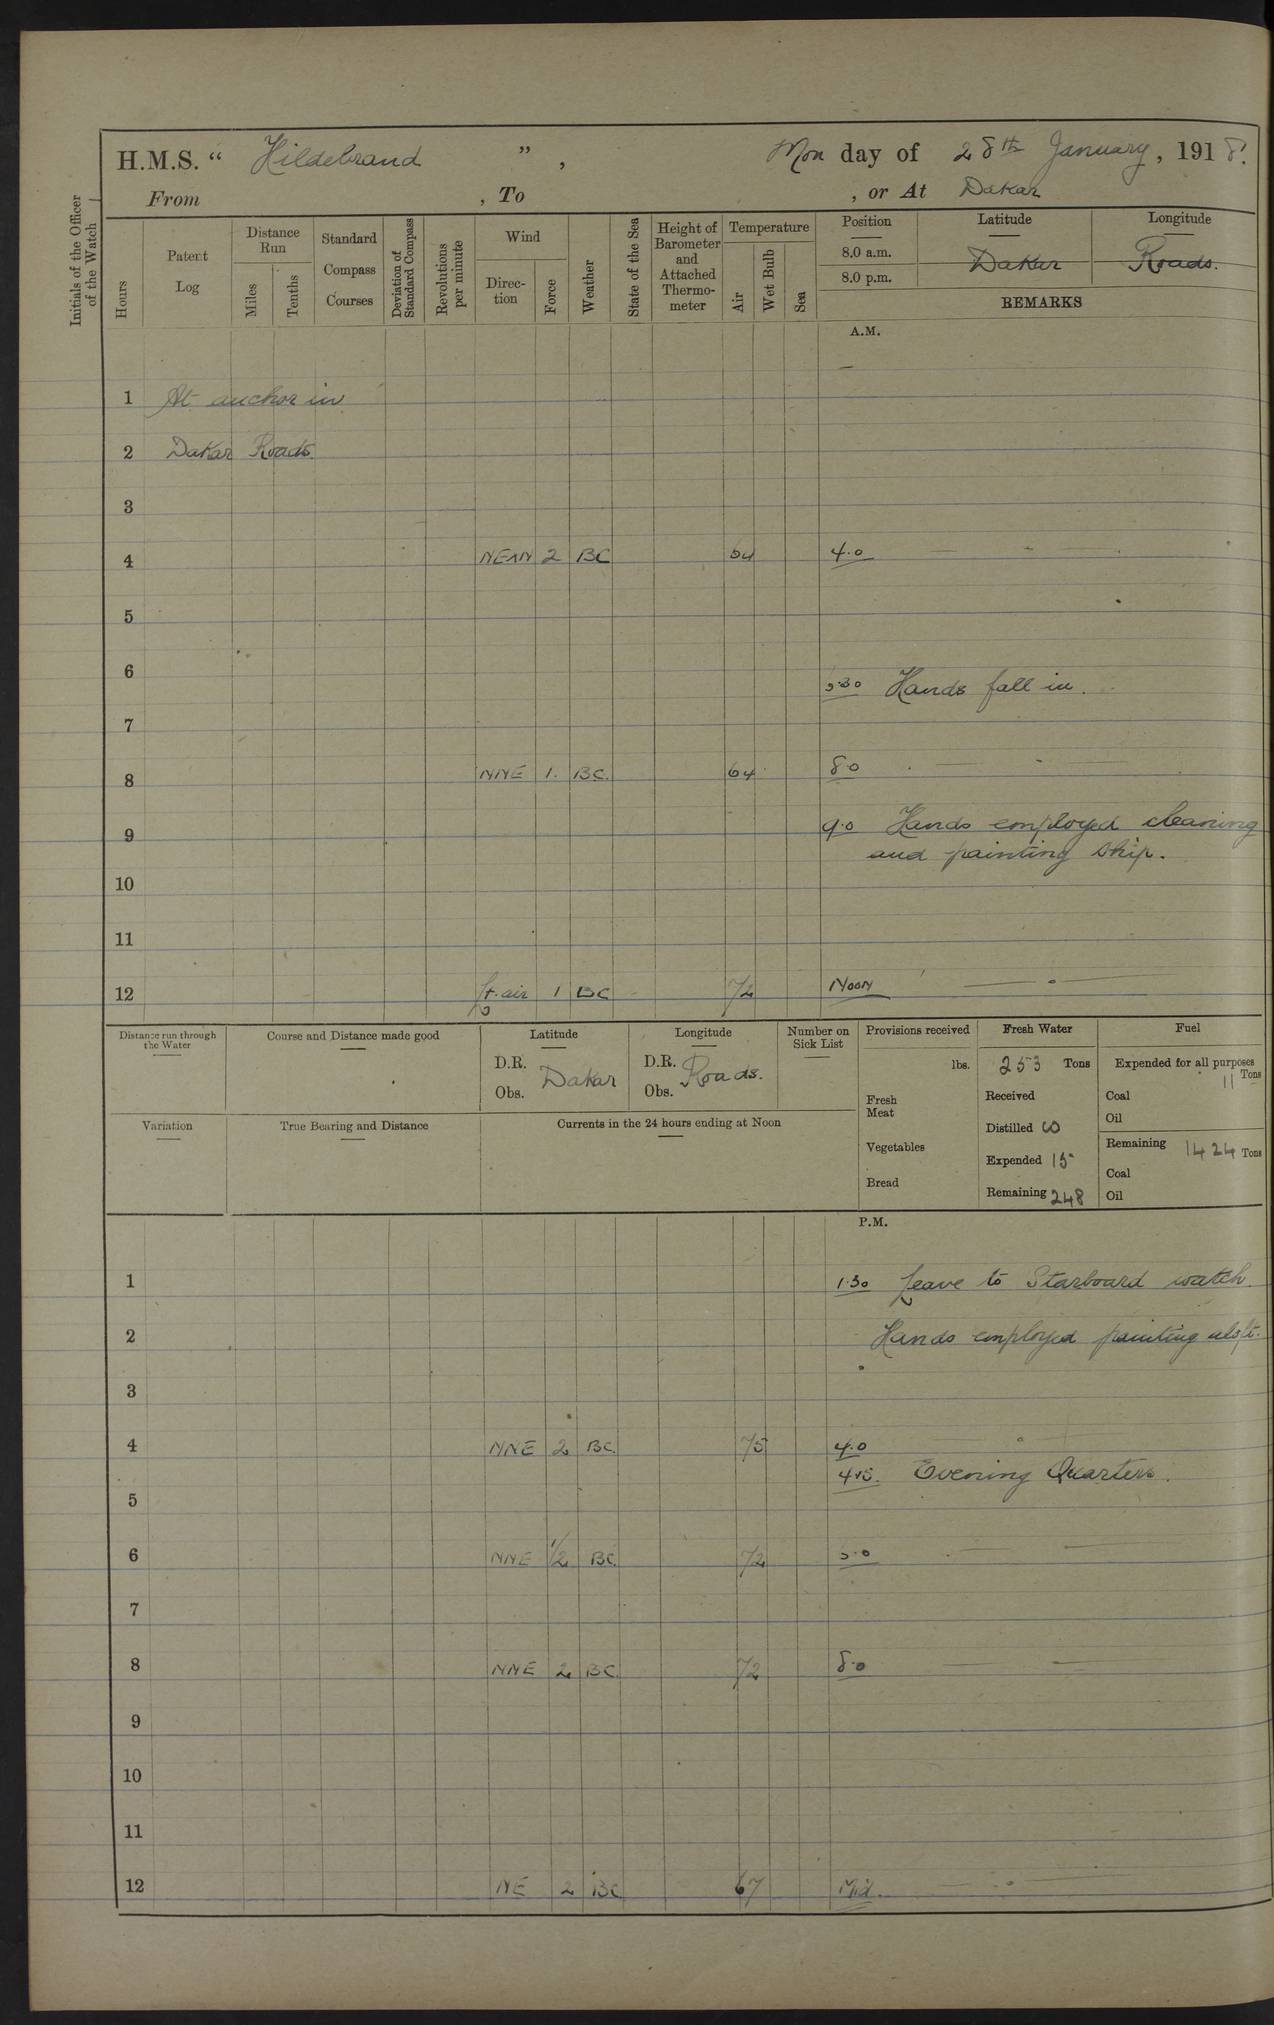 H.M.S. “ Hildebrand ” , Mon day of 28th January, 1918.
From , To , or At Dakar
Initials of the Officer of the Watch
Hours
Patent Log
Distance Run
Miles
Tenths
Standard Compass Courses
Deviation of Standard Compass
Revolutions per minute
Wind
Direc-tion
Force
Weather
State of the Sea
Height of Barometer and Attached Thermo-meter
Temperature
Air
Wet Bulb
Sea
Position Latitude Longitude
8.0 a.m.
8.0 p.m. Dakar Roads.
REMARKS
A.M.
1 At anchor in
2 Dakar Roads.
3
4 NEAN 2 BC 64 4.0
5
6
5.30 Hands fall in.
7
8 NNE 1. BC. 64 8.0
9 9.0 Hands employed cleaning
and painting ship.
10
11
12 Lt. air 1 BC 72 Noon
Distance run through the Water
Course and Distance made good
Latitude
D.R.
Obs. Dakar
Longitude
D.R.
Obs. Roads.
Number on Sick List
Provisions received
lbs.
Fresh Meat
Vegetables
Bread
Fresh Water
253 Tons
Received
Distilled
Expended 15
Remaining 248
Fuel
Expended for all purposes
11 Tons
Coal
Oil
Remaining 1424 Tons
Coal
Oil
Variation
True Bearing and Distance
Currents in the 24 hours ending at Noon
P.M.
1 1.30 Leave to Starboard watch.
2 Hands employed painting aloft.
3
4 NNE 2 BC. 75 4.0
4.15. Evening Quarters.
5
6 NNE 1/2 BC. 72 5.0
7
8 NNE 2 BC. 72 8.0
9
10
11
12 NE 2 BC 67 Mid.